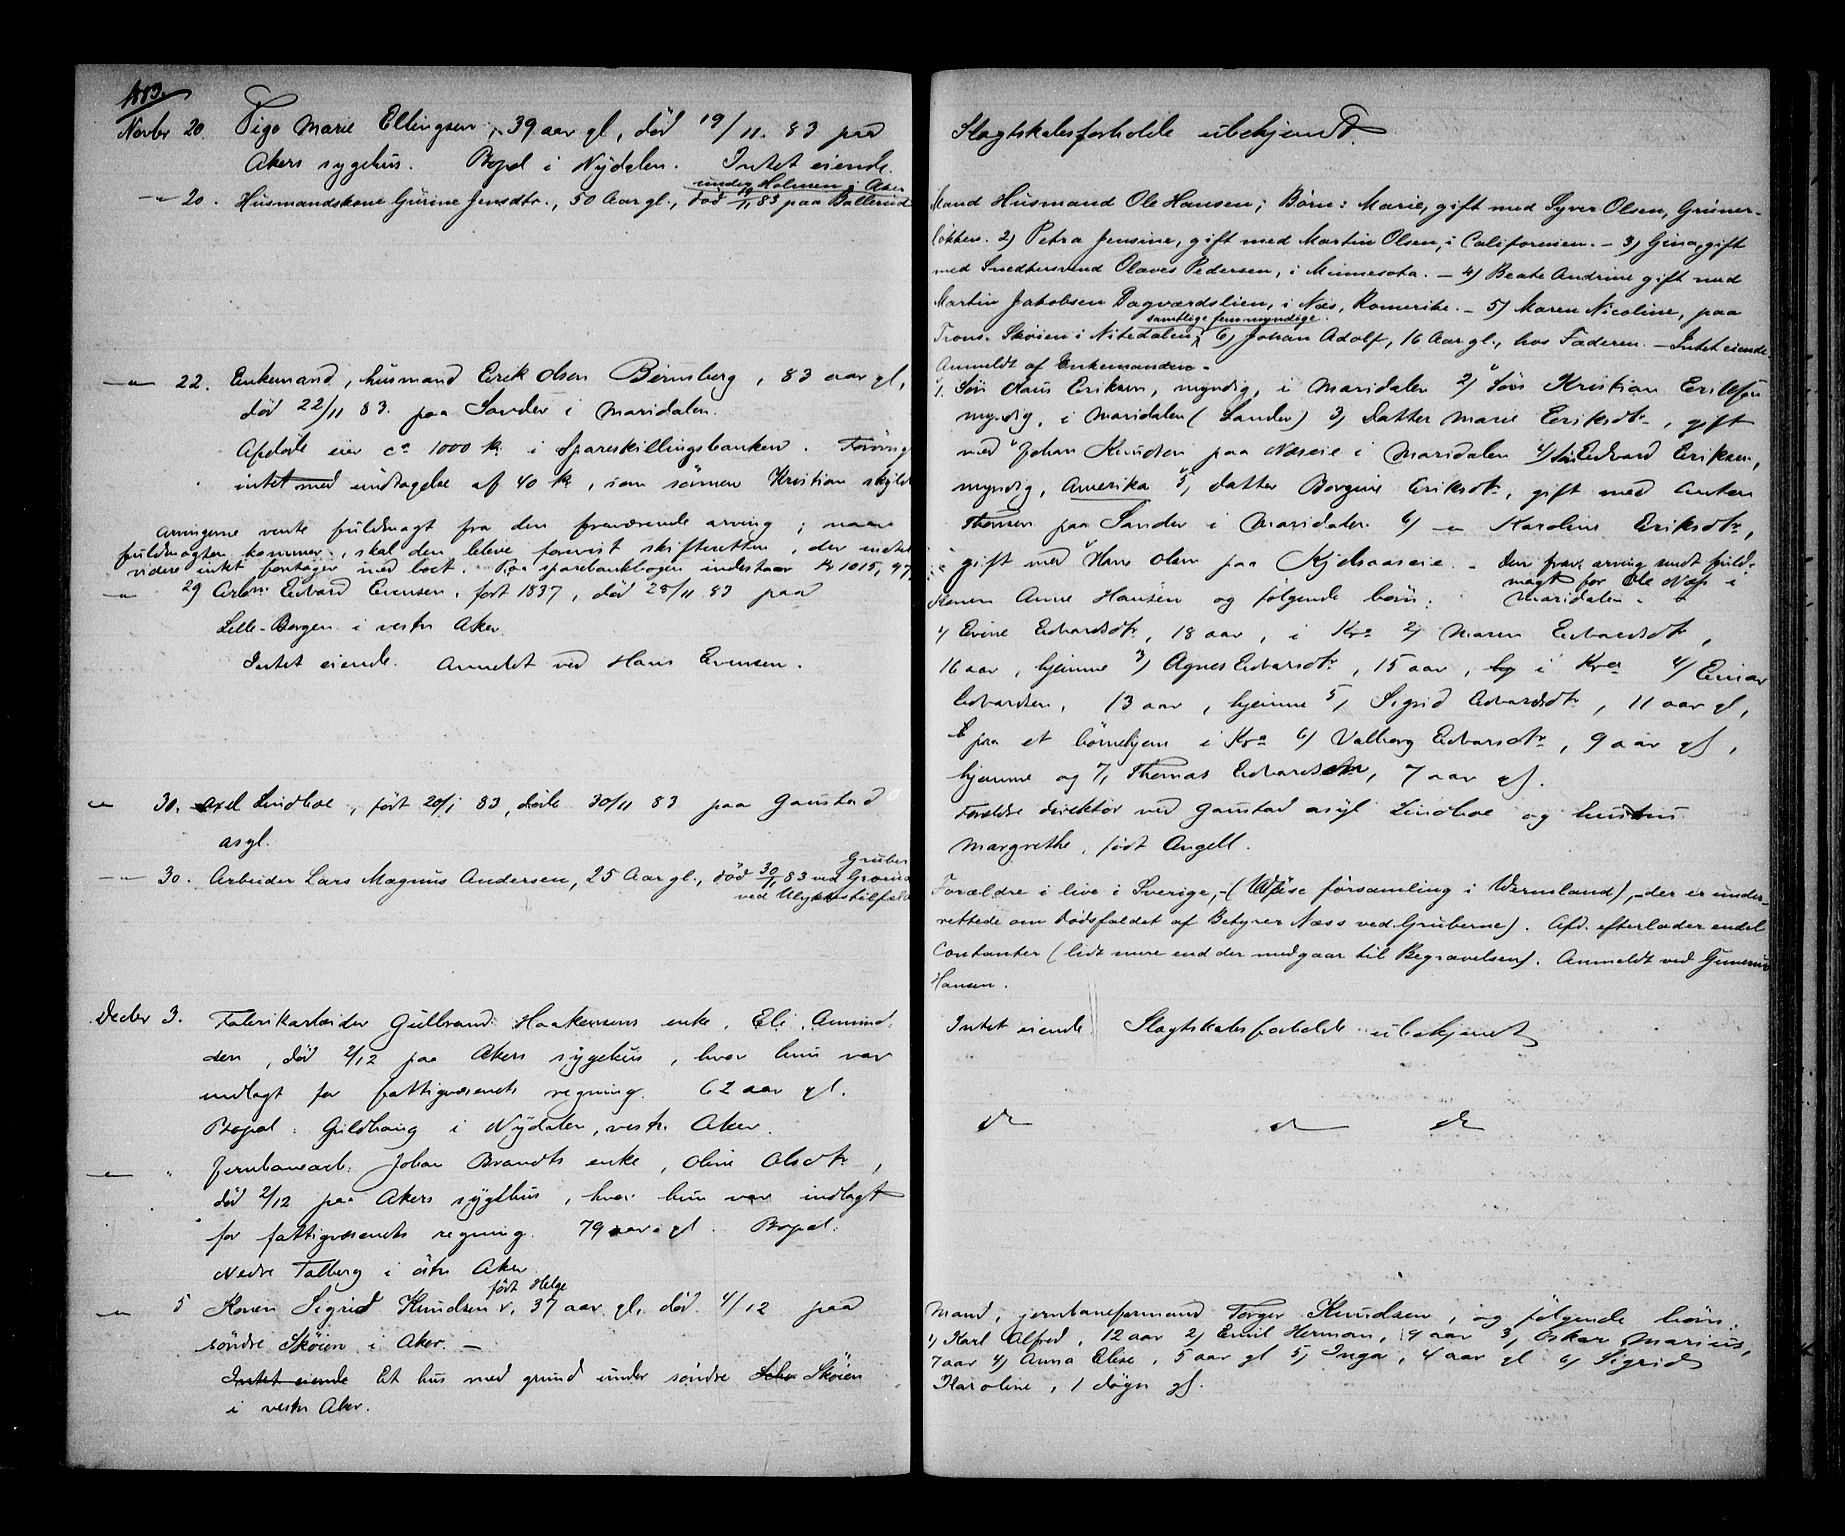 1883.
Novbr 20. Pige Marie Ellingsen, 39 aar gl, død 19/11. 83 paa
Akers sygehus. Bopel i Nydalen. Intet eiende.
under Holmen i Aker
-"- 20. Husmandskone Gurine Jensdtr., 50 Aar gl., død 19/11 83 paa Ballerud
-"- 22. Enkemand, husmand Erik Olsen Børnsberg, 83 aar gl,
død 22/11 83. paa Sander i Maridalen.
Afdøde eier ca 1000 kr i Spareskillingsbanken. Forøvrigt
intet med undtagelse af 40 kr, som sønnen Kristian skyld
Arvingerne vente fuldmagt fra den fraværende arving; naar
fuldmagten kommer, skal den blive forevist skifteretten, der indtil
videre intet foretager med boet. Paa sparebankbogen indestaar Kr 1015,97
-"- 29 Arb. Edvard Evensen, født 1837, død 25/11 83 paa
Lille-Borgen i vestre Aker.
Intet eiende. Anmeldt ved Hans Evensen.
-"- 30. Axel Lindboe, født 20/1 83, døde 30/11 83 paa Gaustad
asyl.
-"- 30. Arbeider Lars Magnus Andersen, 25 Aar gl., død 30/11 83 ved Grorud
Gruber
ved Ulykkestilfælde
Decbr 3. Fabrikarbeider Gulbrand Haakensens enke, Eli Amund.
sen, død 2/12 paa Akers sygehus, hvor hun var
indlagt for fattigvæsenets regning. 62 aar gl.
Bopæl: Guldhaug i Nydalen, vestre Aker.
-"- " Jernbanearb. Johan Brandts enke, Oline Olsdtr,
død 2/12 paa Akers sygehus, hvor hun var indlagt
for fattigvæsenets regning. 79 aar gl. Bopæl:
Nedre Talberg i østre Aker
født Helge
-"- 5 Konen Sigrid Knudsen, 37 aar gl, død 4/12 paa
søndre Skøien i Aker. -
Intet eiende Et hus med grund under søndre Skøien
i vestre Aker.
Slagtskabsforholde ubekjendt.
Mand Husmand Ole Hansen; Børn: Marie, gift med Syver Olsen, Grüner-
løkken. 2) Petra Jensine, gift med Martin Olsen, i Californien. - 3) Gina, gift
med Snedkersvend Olaves Pedersen, i Minnesota. - 4) Beate Andrine gift med
Martin Jakobsen Dagværdslien, i Næs, Romerike. - 5) Maren Nicoline, paa
samtlige fem myndige.
Trons. Skøien i Nitedalen, 6) Johan Adolf, 16 Aar gl., hos Faderen. - Intet eiende.
Anmeldt af Enkemanden -
1. Søn Hans Eriksen, myndig, i Maridalen 2) Søn Kristian Eriksen
myndig, i Maridalen (Sander) 3) Datter Marie Eriksdtr, gift
med Johan Knudsen paa Næseie i Maridalen 4) Søn Edvard Eriksen,
myndig, Amerika 5) datter Borgine Eriksdtr, gift med Anton
Thomsen paa Sander i Maridalen 6) -"- Karoline Eriksdtr,
gift med Hans Olsen paa Kjelsaaseie. - Den frav. arving sendt fuld-
magt for Ole Næs i
Maridalen. -
Konen Anne Hansen og følgende børn:
1) Evine Edvardsdtr, 18 aar, i Kra 2) Maren Edvardsdtr,
16 aar, hjemme 3) Agnes Edvardsdtr, 15 aar, i Kra 4) Einar
Edvardsen, 13 aar, hjemme 5) Sigrid Edvardsdtr, 11 aar gl,
paa et børnehjem i Kra 6) Valborg Edvardsdtr, 9 aar gl,
hjemme og 7, Thomas Edvardsen, 7 aar gl.
Forældre direktør ved Gaustad asyl Lindboe og hustru
Margrethe, født Angell.
Forældre i live i Sverige, - ( församling i Wermland), - der er under-
rettede om Dødsfaldet af Betyrer Næss ved Gruberne). Afd. efterlader endel
Contanter (lidt mere end der medgaar til Begravelsen). Anmeldt ved Gunerius
Hansen.
Intet eiende Slagtskabsforholde ubekjendt
do do do
Mand, jernbaneformand Torger Knudsen, og følgende børn:
1) Karl Alfred, 12 aar 2) Emil Herman, 9 aar 3, Oskar Marius,
7 aar 4) Anna Elise, 5 aar gl 5) Inga, 4 aar gl 6) Sigrid
Karoline, 1 døgn gl.